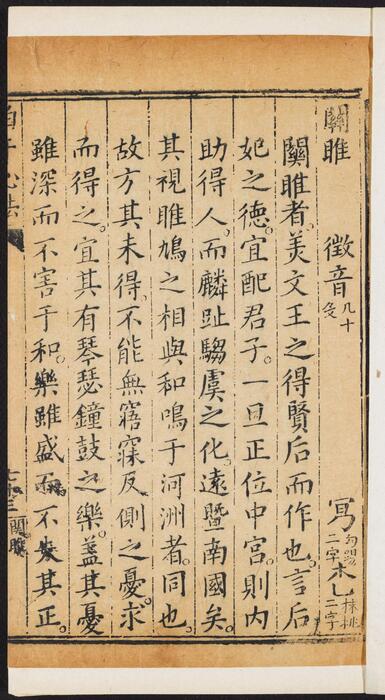 關雎 徵音 凡十段
關雎者美文王之得賢后而作也言后
妃之德宜配君子一旦正位中宮則內
助得人而麟趾騶虞之化遠暨南國矣
其視雎鳩之相與和鳴于河洲者同也
故方其未得不能無寤寐反側之憂求
而得之宜其有琴瑟鐘鼓之樂蓋其憂
雖深而不害于和樂雖盛而不失其正